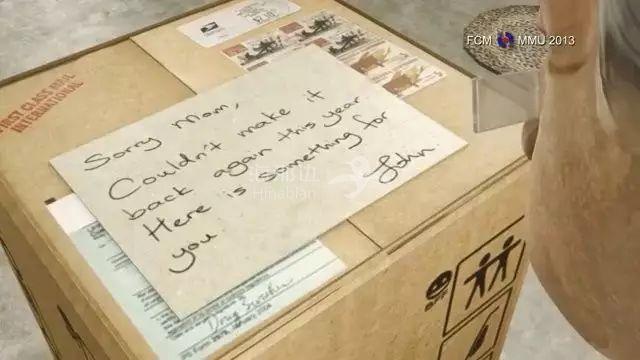 FCM MMU 2013
FIRST CLASS MAIL
INTERNATIONAL
Sorry Mom,
Couldn't make it
back again this year
Here is something for
you
John.
Hinabian